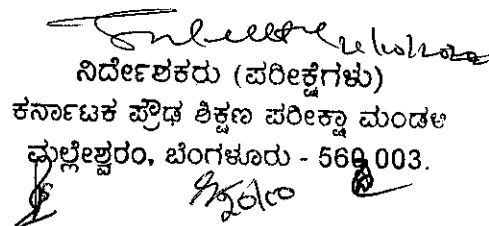 ನಿರ್ದೇಶಕರು (ಪರೀಕ್ಷೆಗಳು)
ಕರ್ನಾಟಕ ಪ್ರೌಢ ಶಿಕ್ಷಣ ಪರೀಕ್ಷಾ ಮಂಡಳಿ
ಮಲ್ಲೇಶ್ವರಂ, ಬೆಂಗಳೂರು - 560 003.